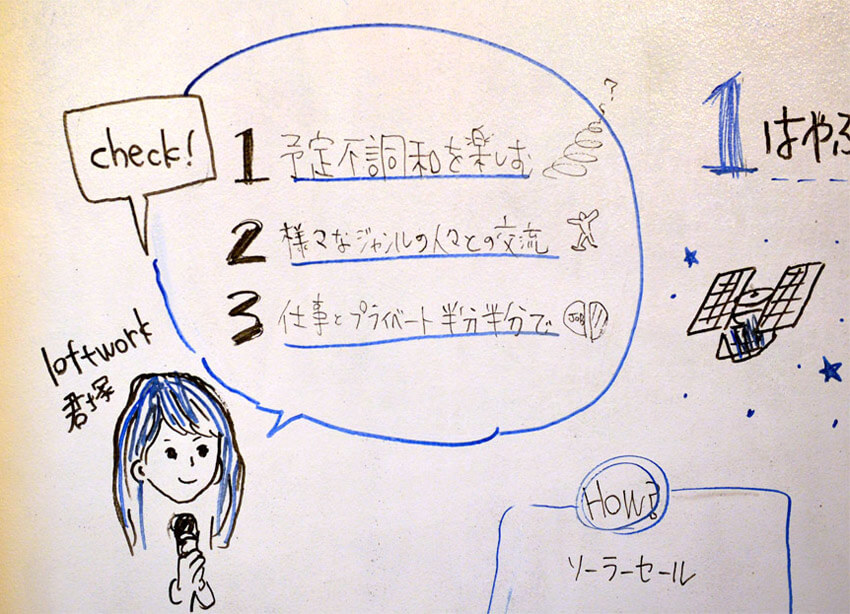 check!
1 予定不調和を楽しむ
?
2 様々なジャンルの人々との交流
3 仕事とプライベート半分半分で
JOB
loftwork
君塚
1 はやぶ
How?
ソーラーセール